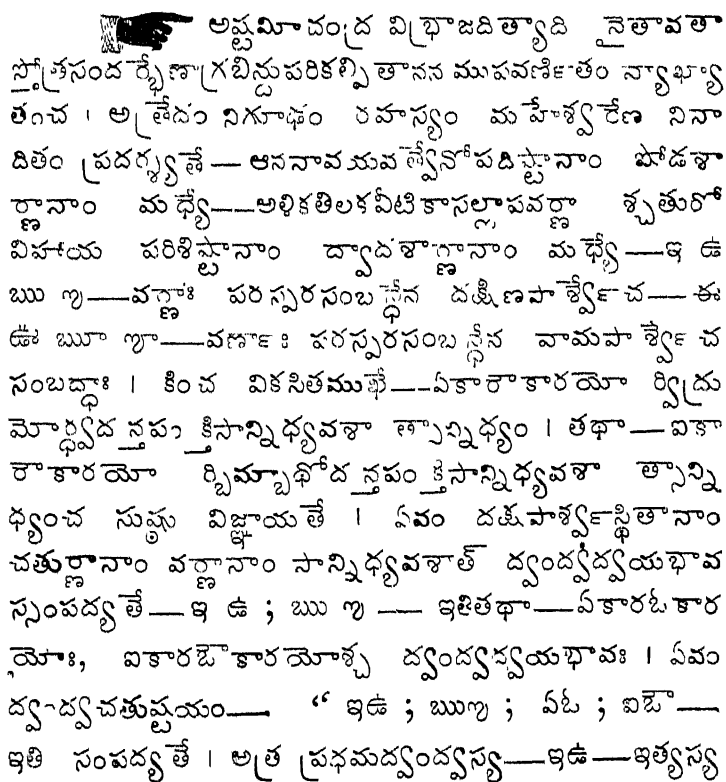 అష్టమీచంద్ర విభ్రాజదిత్యాది నైతావతా
స్తోత్రసందర్భేణాగ్రబిన్దుపరికల్పితాననముపవర్ణితం వ్యాఖ్యా
తంచ । అత్రేదం నిగూఢం రహస్యం మహేశ్వరేణ నినా
దితం ప్రదర్శ్యతే — ఆననావయవత్వేనోపదిష్టానాం షోడశా
ర్ణానాం మధ్యే — అళికతిలకవీటికాసల్లాపవర్ణా శ్చతురో
విహాయ పరిశిష్టానాం ద్వాదశార్ణానాం మధ్యే — ఇ ఉ
ఋ ఌ — వర్ణాః పరస్పరసంబన్ధేన దక్షిణపార్శ్వేచ — ఈ
ఊ ౠ ౡ — వర్ణాః పరస్పరసంబన్ధేన వామపార్శ్వే చ
సంబద్ధాః । కించ వికసితముఖే — ఏకారౌకారయో ర్విద్రు
మోర్ధ్వదన్తపంక్తిసాన్నిధ్యవశా త్సాన్నిధ్యం । తథా — ఐకా
రౌకారయో ర్బిమ్బాథోదన్తపంక్తిసాన్నిధ్యవశా త్సాన్ని
ధ్యంచ సుష్ఠు విజ్ఞాయతే । ఏవం దక్షపార్శ్వస్థితానాం
చతుర్ణానాం వర్ణానాం సాన్నిధ్యవశాత్ ద్వంద్వద్వయభావ
స్సంపద్యతే — ఇ ఉ ; ఋ ఌ — ఇతితథా — ఏకారఓకార
యోః, ఐకారఔకారయోశ్చ ద్వంద్వద్వయభావః । ఏవం
ద్వంద్వచతుష్టయం — “ ఇఉ ; ఋఌ ; ఏఓ ; ఐఔ —
ఇతి సంపద్యతే । అత్ర ప్రధమద్వంద్వస్య — ఇఉ — ఇత్యస్య